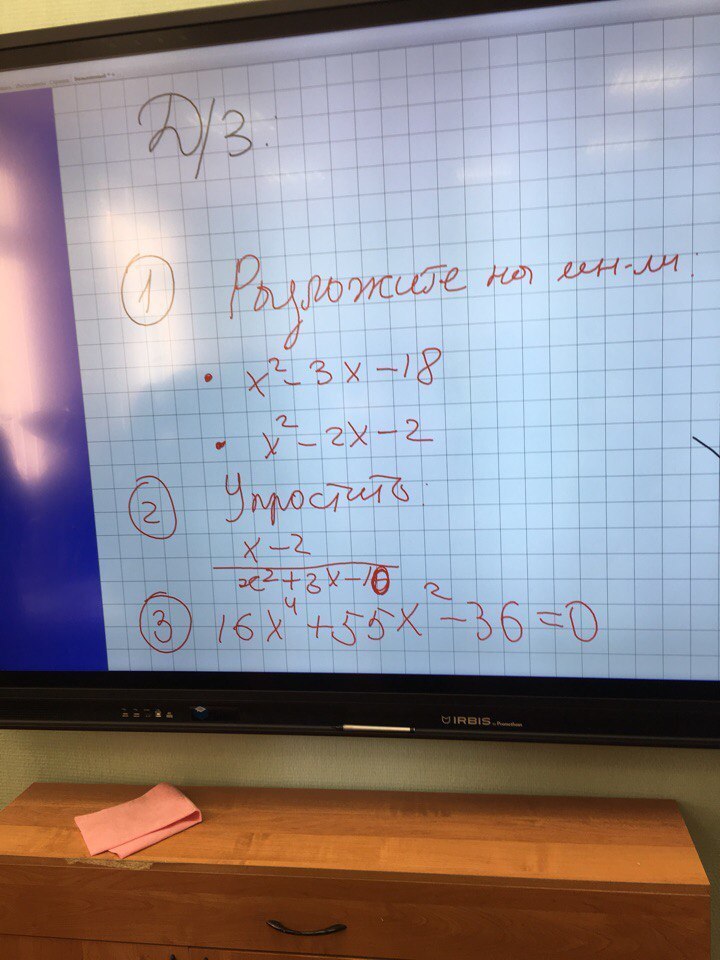 Д/З:
① Разложите на мн-ли:
• x² - 3x - 18
• x² - 2x - 2
② Упростить:
x - 2
x² + 3x - 10
③ 16x⁴ + 55x² - 36 = 0
IRBIS by Promethean